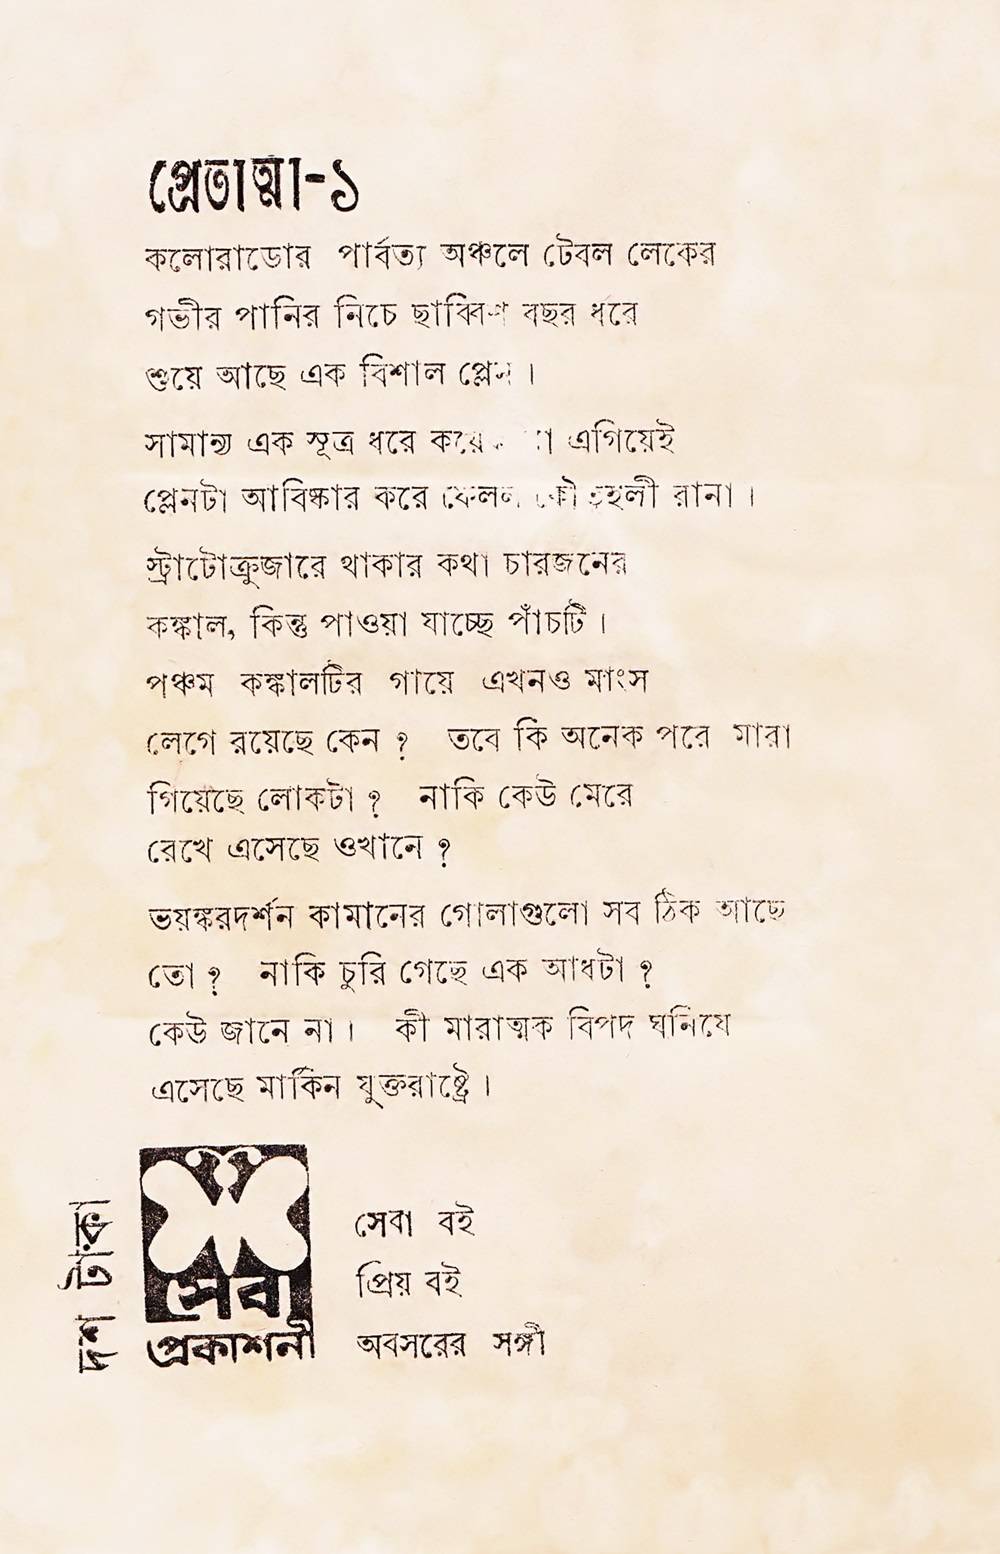 প্রেতাত্মা-১
কলোরাডোর পার্বত্য অঞ্চলে টেবল লেকের
গভীর পানির নিচে ছাব্বিশ বছর ধরে
শুয়ে আছে এক বিশাল প্লেন।
সামান্য এক সূত্র ধরে এগিয়েই
প্লেনটা আবিষ্কার করে ফেলল কৌতূহলী রানা।
স্ট্রাটোক্রুজারে থাকার কথা চারজনের
কঙ্কাল, কিন্তু পাওয়া যাচ্ছে পাঁচটি।
পঞ্চম কঙ্কালটির গায়ে এখনও মাংস
লেগে রয়েছে কেন? তবে কি অনেক পরে মারা
গিয়েছে লোকটা? নাকি কেউ মেরে
রেখে এসেছে ওখানে?
ভয়ঙ্করদর্শন কামানের গোলাগুলো সব ঠিক আছে
তো? নাকি চুরি গেছে এক আধটা?
কেউ জানে না। কী মারাত্মক বিপদ ঘনিয়ে
এসেছে মার্কিন যুক্তরাষ্ট্রে।
দশ টাকা
সেবা
প্রকাশনী
সেবা বই
প্রিয় বই
অবসরের সঙ্গী